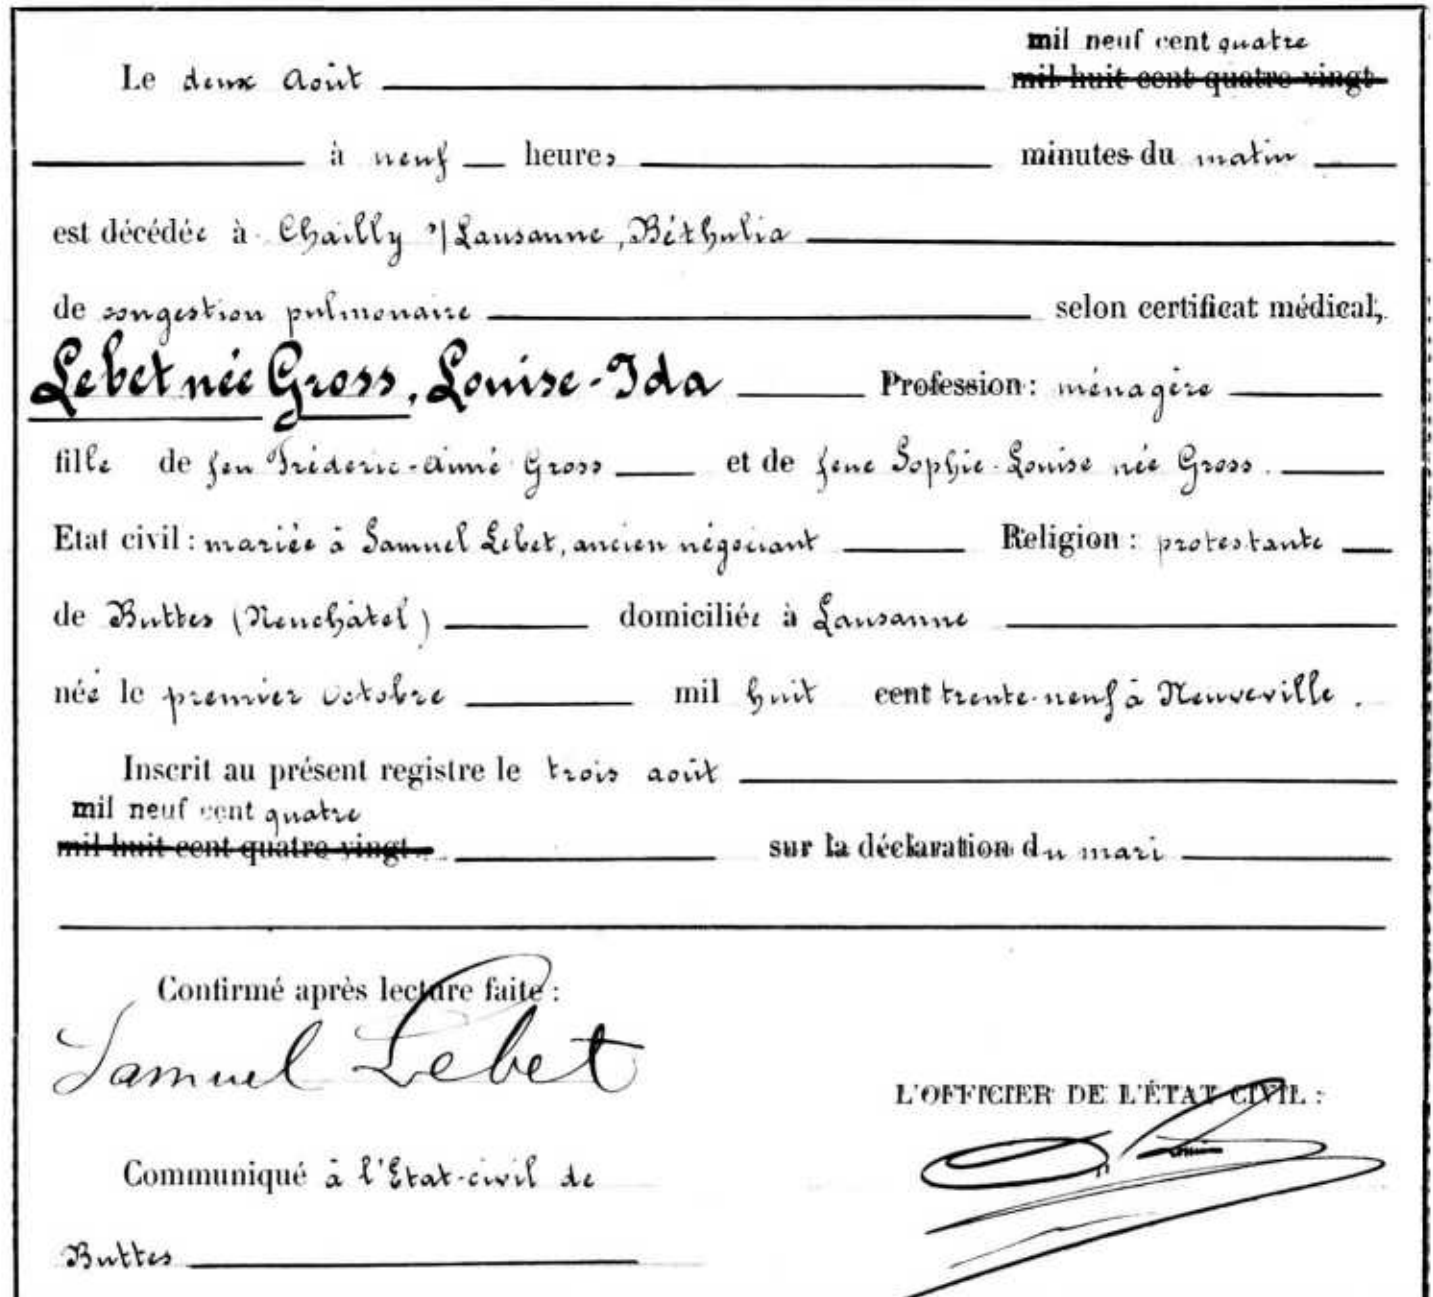 mil neuf cent quatre
Le deux Août mil huit cent quatre-vingt
à neuf heures minutes du matin
est décédée à Chailly s/Lausanne, Béthulia
de congestion pulmonaire selon certificat médical,
Lebet née Gross, Louise-Ida Profession : ménagère
fille de feu Fréderic-Aimé Gross et de feue Sophie-Louise née Gross.
Etat civil : mariée à Samuel Lebet, ancien négociant Religion : protestante
de Buttes (Neuchâtel) domiciliée à Lausanne
née le premier octobre mil huit cent trente-neuf à Neuveville.
Inscrit au présent registre le trois août
mil neuf cent quatre
mil huit cent quatre-vingt sur la déclaration du mari
Confirmé après lecture faite :
Samuel Lebet
L'OFFICIER DE L'ÉTAT CIVIL :
Communiqué à l'Etat-civil de
Buttes